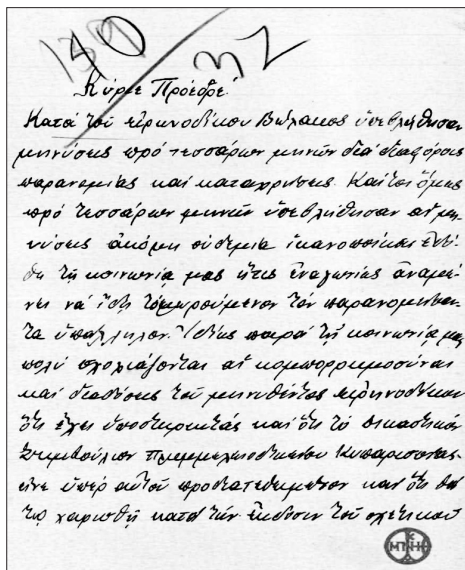 130
32
Κύριε Πρόεδρε
Κατά τοῦ εἰρηνοδίκου Βώλακος ὑπεβλήθησαν
μηνύσεις πρό τεσσάρων μηνῶν διά διαφόρους
παρανομίας καί καταχρήσεις. Καίτοι ὅμως
πρό τεσσάρων μηνῶν ὑπεβλήθησαν αἱ μη-
νύσεις ἀκόμη οὐδεμία ἱκανοποίησις ἐδό-
θη τῇ κοινωνίᾳ μας ἥτις ἐναγωνίως ἀναμέ-
νει νά ἴδῃ τιμωρούμενον τόν παρανομήσαν-
τα ὑπάλληλον. Ἰδίως παρά τῇ κοινωνίᾳ μας
πολύ σχολιάζονται αἱ κομπορρημοσύναι
καί διαδόσεις τοῦ μηνυθέντος εἰρηνοδίκου
ὅτι ἔχει ὑποστηρικτάς καί ὅτι τό δικαστικόν
Συμβούλιον Πλημμελειοδικείου Κυπαρισσίας
εἶνε ὑπέρ αὐτοῦ καί ὅτι θά
τῷ χαρισθῇ κατά τήν ἔκδοσιν τοῦ σχετικοῦ